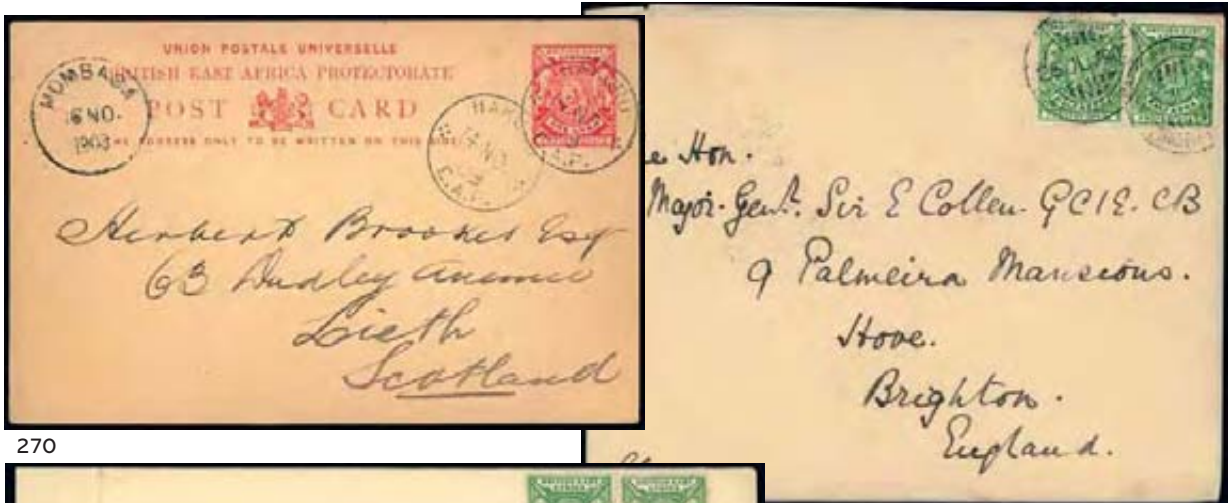 UNION POSTALE UNIVERSELLE
BRITISH EAST AFRICA PROTECTORATE
POST CARD
THE ADDRESS ONLY TO BE WRITTEN ON THIS SIDE
MOMBASA
16 NO.
1903
14 NO
E.A.P.
E.A.P.
Herbert Brookes Esq
63 Dudley Avenue
Lieth
Scotland
270
e Hon.
Major-Genl. Sir E Collen. GCIE. CB
9 Palmeira Mansions.
Hove.
Brighton.
England.